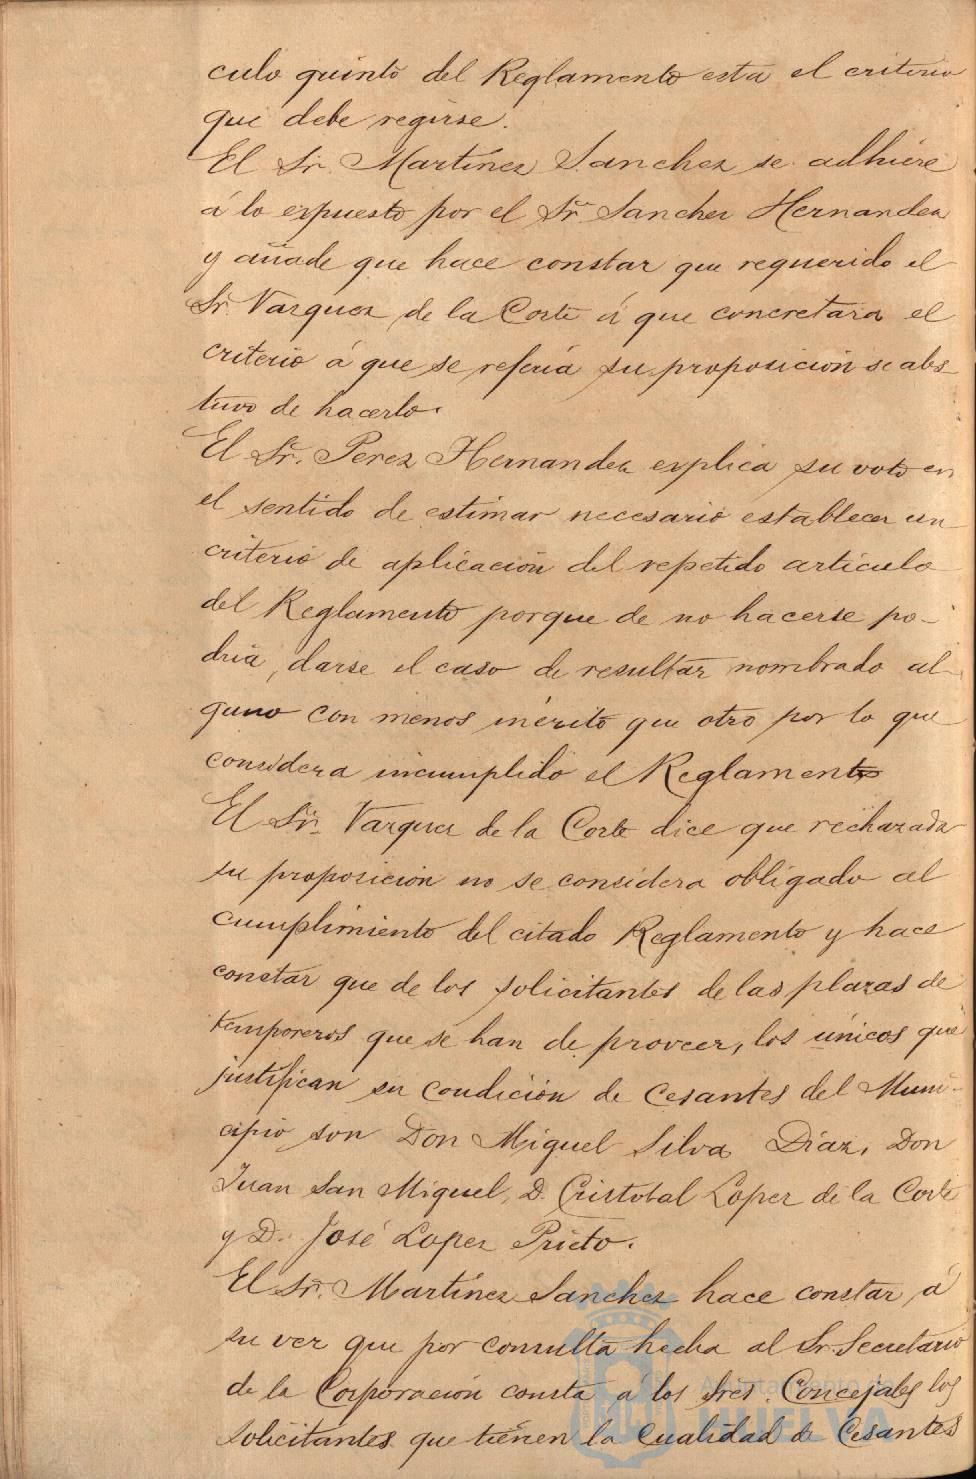 culo quinto del Reglamento esta el criterio
que debe regirse.
El Sr. Martinez Sanchez se adhiere
á lo expuesto por el Sr. Sanchez Hernandez
y añade que hace constar que requerido el
Sr. Vazquez de la Corte á que concretara el
criterio á que se referia su proposicion se abs-
tuvo de hacerlo.
El Sr. Perez Hernandez explica su voto en
el sentido de estimar necesario establecer un
criterio de aplicacion del repetido articulo
del Reglamento porque de no hacerse po-
dria, darse el caso de resultar nombrado al-
guno con menos mérito que otro por lo que
considera incumplido el Reglamento
El Sr. Vazquez de la Corte dice que rechazada
su proposicion no se considera obligado al
cumplimiento del citado Reglamento y hace
constar que de los solicitantes de las plazas de
temporeros que se han de proveer, los únicos que
justifican su condición de Cesantes del Muni-
cipio son Don Miguel Silva Díaz, Don
Juan San Miguel, D. Cristobal Lopez de la Corte
y D. José Lopez Prieto.
El Sr. Martinez Sanchez hace constar á
su vez que por consulta hecha al Sr. Secretario
de la Corporación consta a los Sres. Concejales los
solicitantes que tienen la Cualidad de Cesantes
Ayuntamiento de
HUELVA